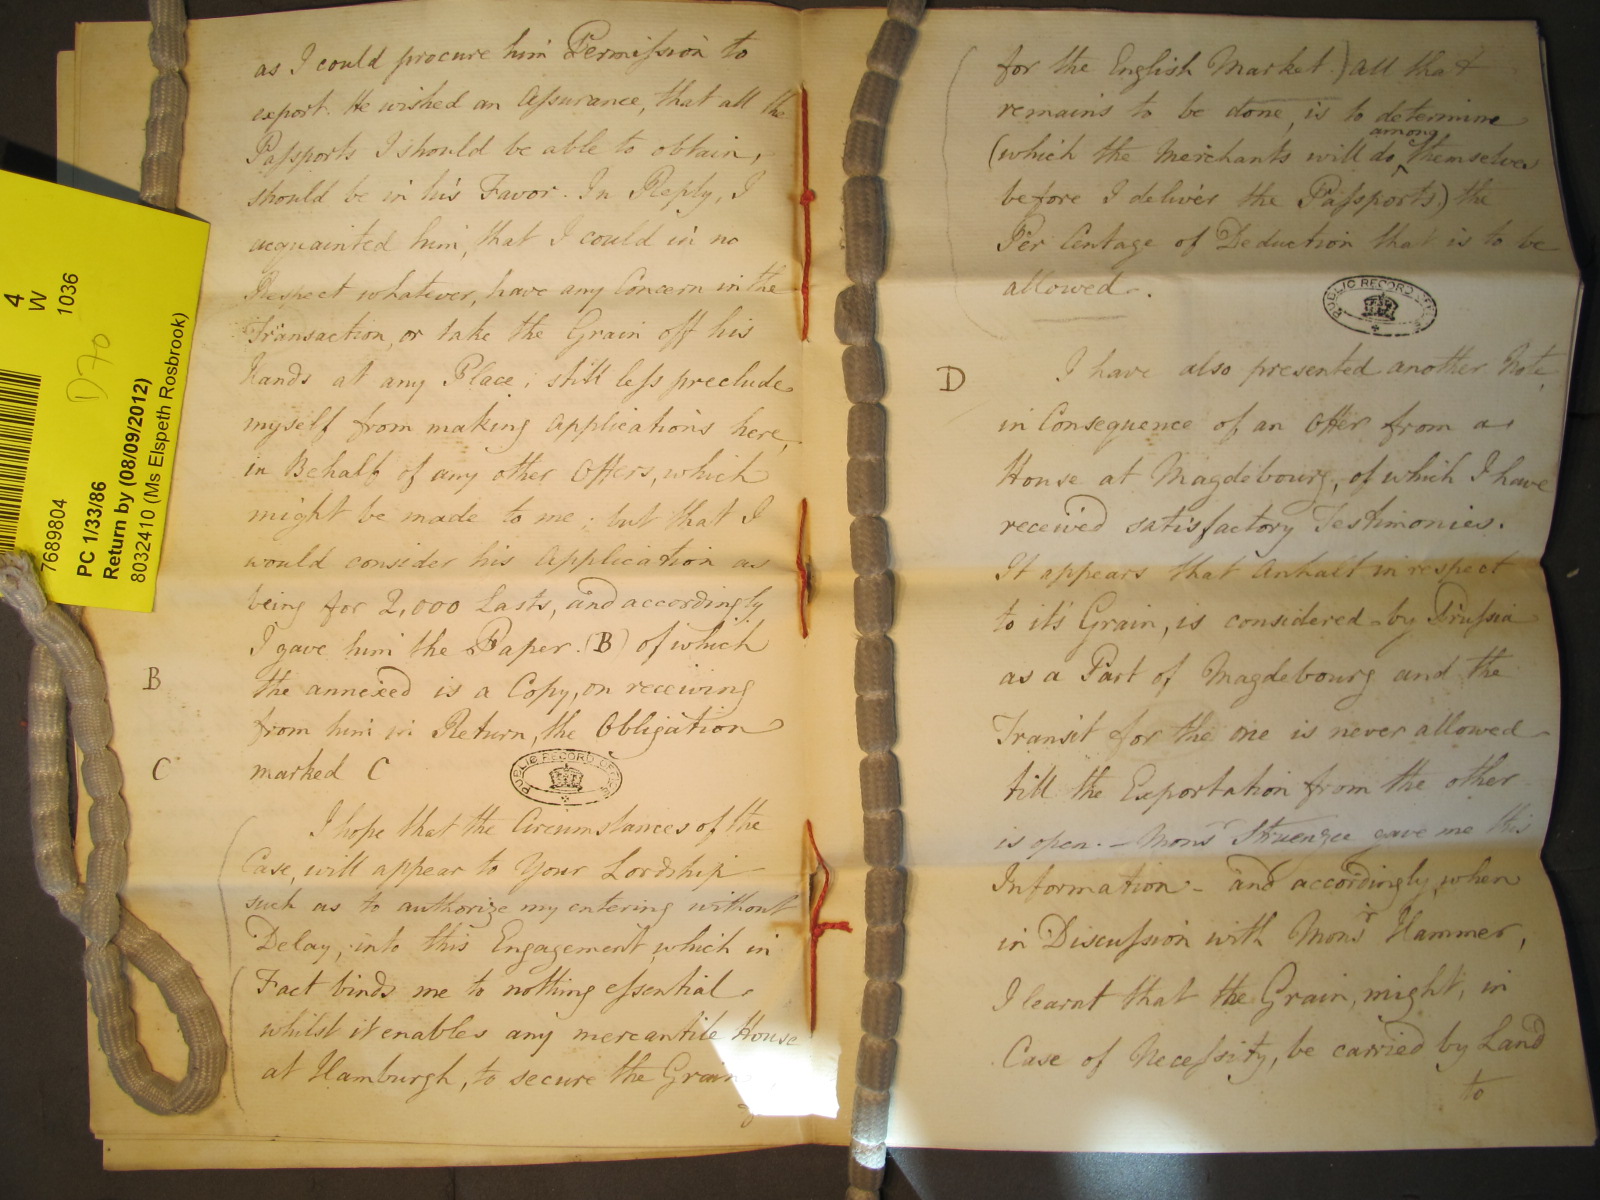 as I could procure him Permission to
export. He wished an Assurance, that all the
Passports I should be able to obtain,
should be in his Favor. In Reply, I
acquainted him, that I could in no
Respect whatever, have any Concern in the
Transaction, or take the Grain off his
hands at any Place; still less preclude
myself from making Applications here,
in Behalf of any other Offers, which
might be made to me; but that I
would consider his Application as
being for 2,000 Lasts, and accordingly
I gave him the Paper (B) of which
B
the annexed is a Copy, on receiving
from him in Return, the Obligation
C
marked C
PUBLIC RECORD OFFICE
I hope that the Circumstances of the
Case, will appear to Your Lordship
such as to authorize my entering without
Delay, into this Engagement, which in
Fact binds me to nothing essential
whilst it enables any mercantile House
at Hamburgh, to secure the Grain
for the English Market.) All that
remains to be done, is to determine
(which the Merchants will do among themselves
before I deliver the Passports) the
Per Centage of Deduction that is to be
allowed.
PUBLIC RECORD OFFICE
D
I have also presented another Note
in Consequence of an Offer from a
House at Magdebourg, of which I have
received satisfactory Testimonies.
It appears that Anhalt in respect
to it's Grain, is considered by Prussia
as a Part of Magdebourg and the
Transit for the one is never allowed
till the Exportation from the other
is open. - Monsr Struensee gave me this
Information - and accordingly, when
in Discussion with Monsr Hammer,
I learnt that the Grain, might, in
Case of Necessity, be carried by Land
to
4
W
1036
D70
7689804
PC 1/33/86
Return by (08/09/2012)
8032410 (Ms Elspeth Rosbrook)